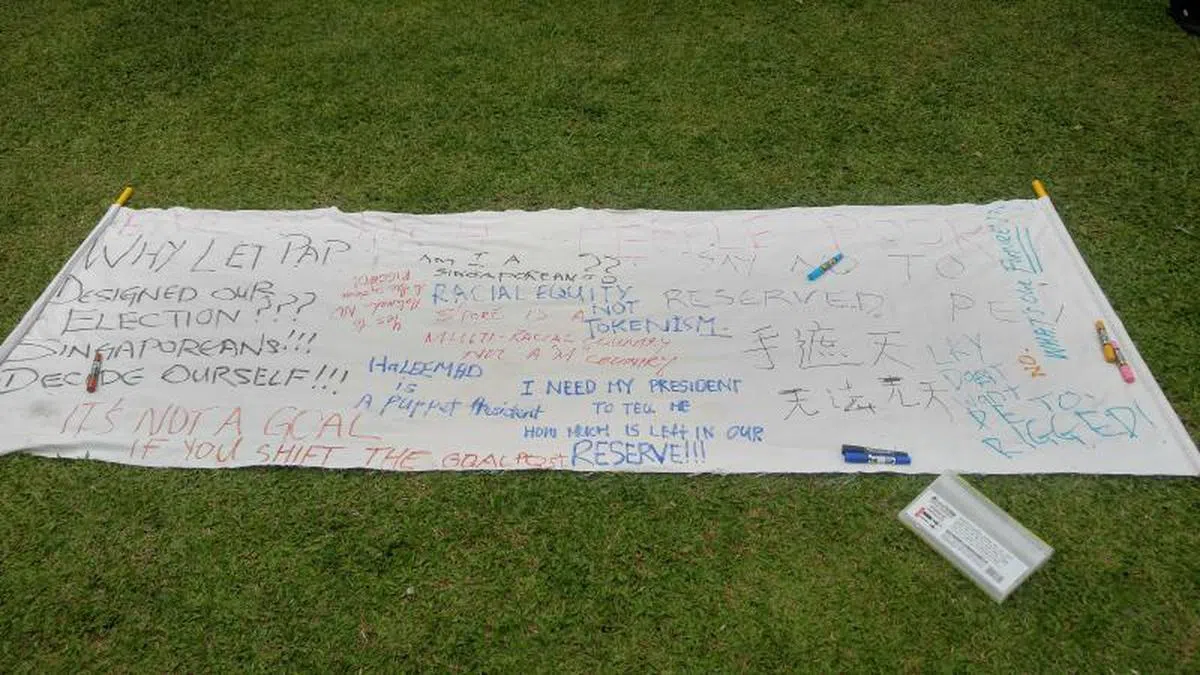 WHY LET PAP
DESIGNED OUR
ELECTION???
SINGAPOREANS!!!
DECIDE OURSELF!!!
IT'S NOT A GOAL
IF YOU SHIFT THE GOALPOST
AM I A ??
SINGAPOREAN??
RACIAL EQUITY
NOT
TOKENISM.
S'PORE IS A
MULTI-RACIAL COUNTRY
NOT A 'M' COUNTRY
RIGGED!
Yes to
HALEEMAD
is
A Puppet President
I NEED MY PRESIDENT
TO TELL ME
HOW MUCH IS LEFT IN OUR
RESERVE!!!
PEOPLE
SAY NO TO
RESERVED PE!
手遮天
无法无天
LKY
PE TO
RIGGED!
NO.
WHAT'S OUR FUTURE??